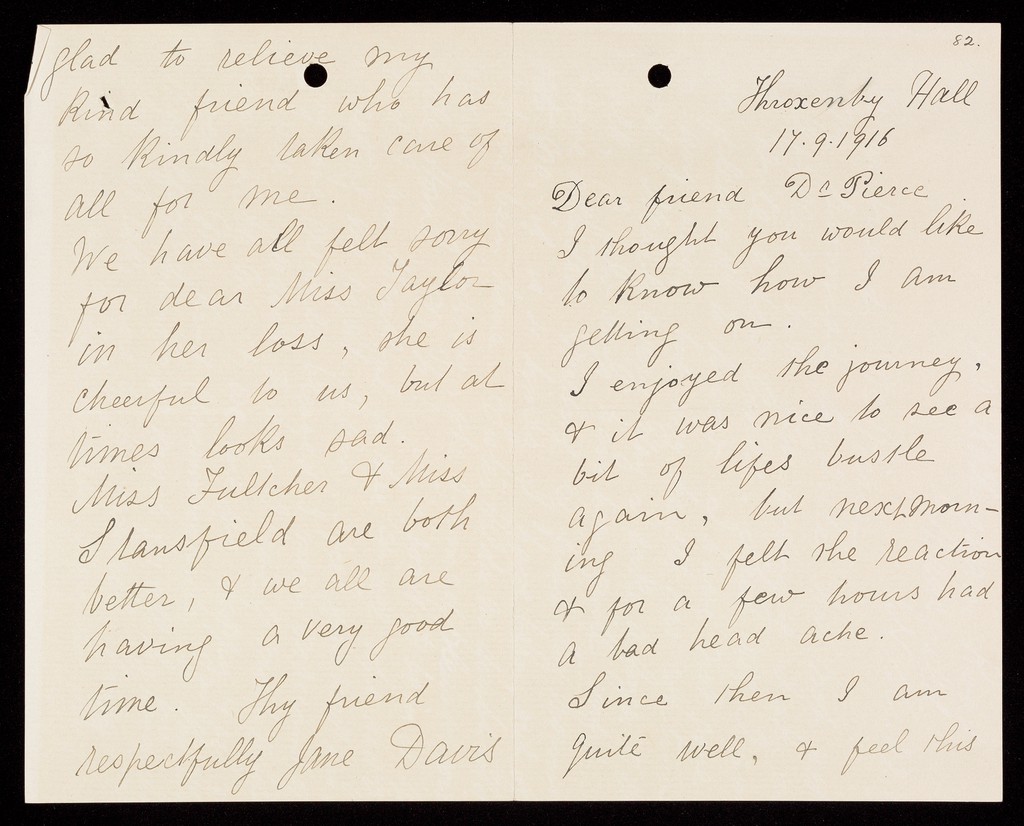 82.
Throxenby Hall
17.9.1916
Dear friend Dr Pierce
I thought you would like
to know how I am
getting on.
I enjoyed the journey,
& it was nice to see a
bit of lifes bustle
again, but next morn-
ing I felt the reaction
& for a few hours had
a bad head ache.
Since then I am
quite well, & feel this
glad to relieve my
kind friend who has
so kindly taken care of
all for me.
We have all felt sorry
for dear Miss Taylor
in her loss, she is
cheerful to us, but at
times looks sad.
Miss Fultcher & Miss
Stansfield are both
better, & we all are
having a very good
time. Thy friend
respectfully Jane Davis